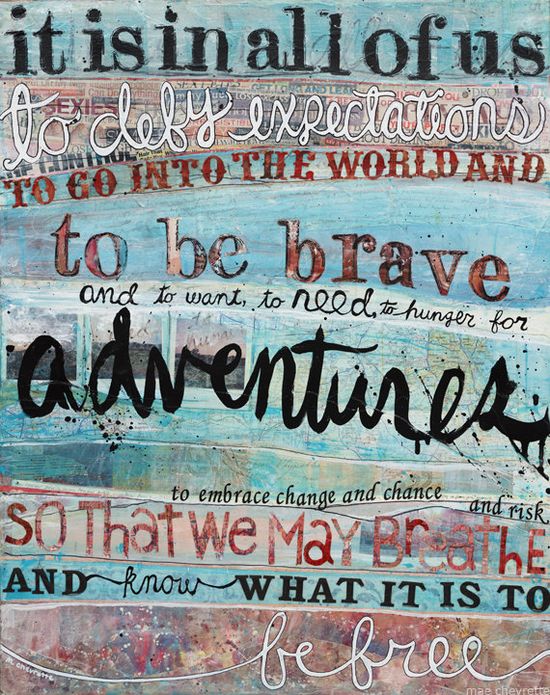 it is in all of us
to defy expectations
TO GO INTO THE WORLD AND
to be brave
and to want, to need, to hunger for
adventures
to embrace change and chance
and risk
SO That We May BreathE
AND know WHAT IT IS TO
be free
m. chevrette
mae chevrette